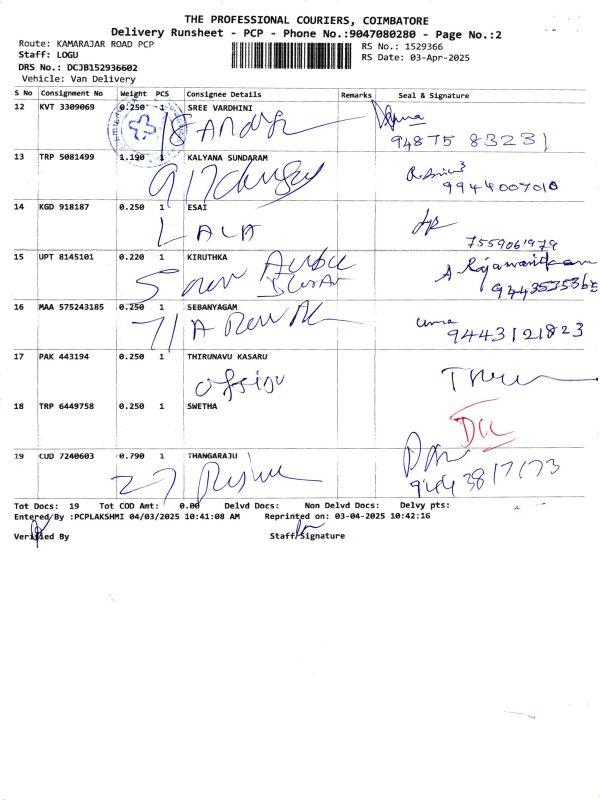 THE PROFESSIONAL COURIERS, COIMBATORE
Delivery Runsheet - PCP - Phone No.:9047080280 - Page No.:2
Route: KAMARAJAR ROAD PCP
Staff: LOGU
DRS No.: DCJB152936602
Vehicle: Van Delivery
RS No.: 1529366
RS Date: 03-Apr-2025
S No Consignment No Weight PCS Consignee Details Remarks Seal & Signature
12 KVT 3309069 0.250 1 SREE VARDHINI
94875 83231
13 TRP 5081499 1.190 1 KALYANA SUNDARAM
9944007010
14 KGD 918187 0.250 1 ESAI
LALA
7559061979
15 UPT 8145101 0.220 1 KIRUTHKA
16 MAA 575243185 0.250 1 SEBANYAGAM
uma
9443121823
17 PAK 443194 0.250 1 THIRUNAVU KASARU
18 TRP 6449758 0.250 1 SWETHA
19 CUD 7240603 0.790 1 THANGARAJU
27
Tot Docs: 19 Tot COD Amt: 0.00 Delvd Docs: Non Delvd Docs: Delvy pts:
Entered By :PCPLAKSHMI 04/03/2025 10:41:08 AM Reprinted on: 03-04-2025 10:42:16
Verified By Staff Signature